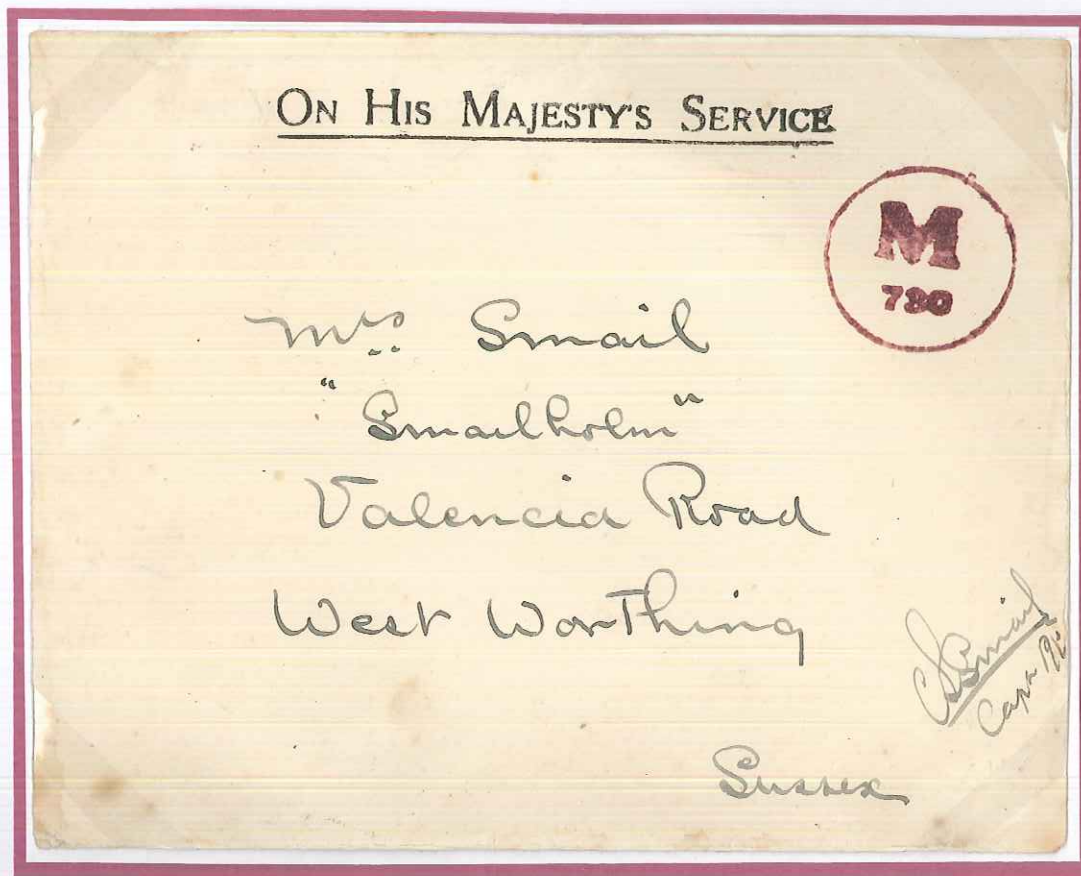 ON HIS MAJESTY'S SERVICE
M
730
Mrs Smail
"Smailholm"
Valencia Road
West Worthing
Sussex
Smail
Capt